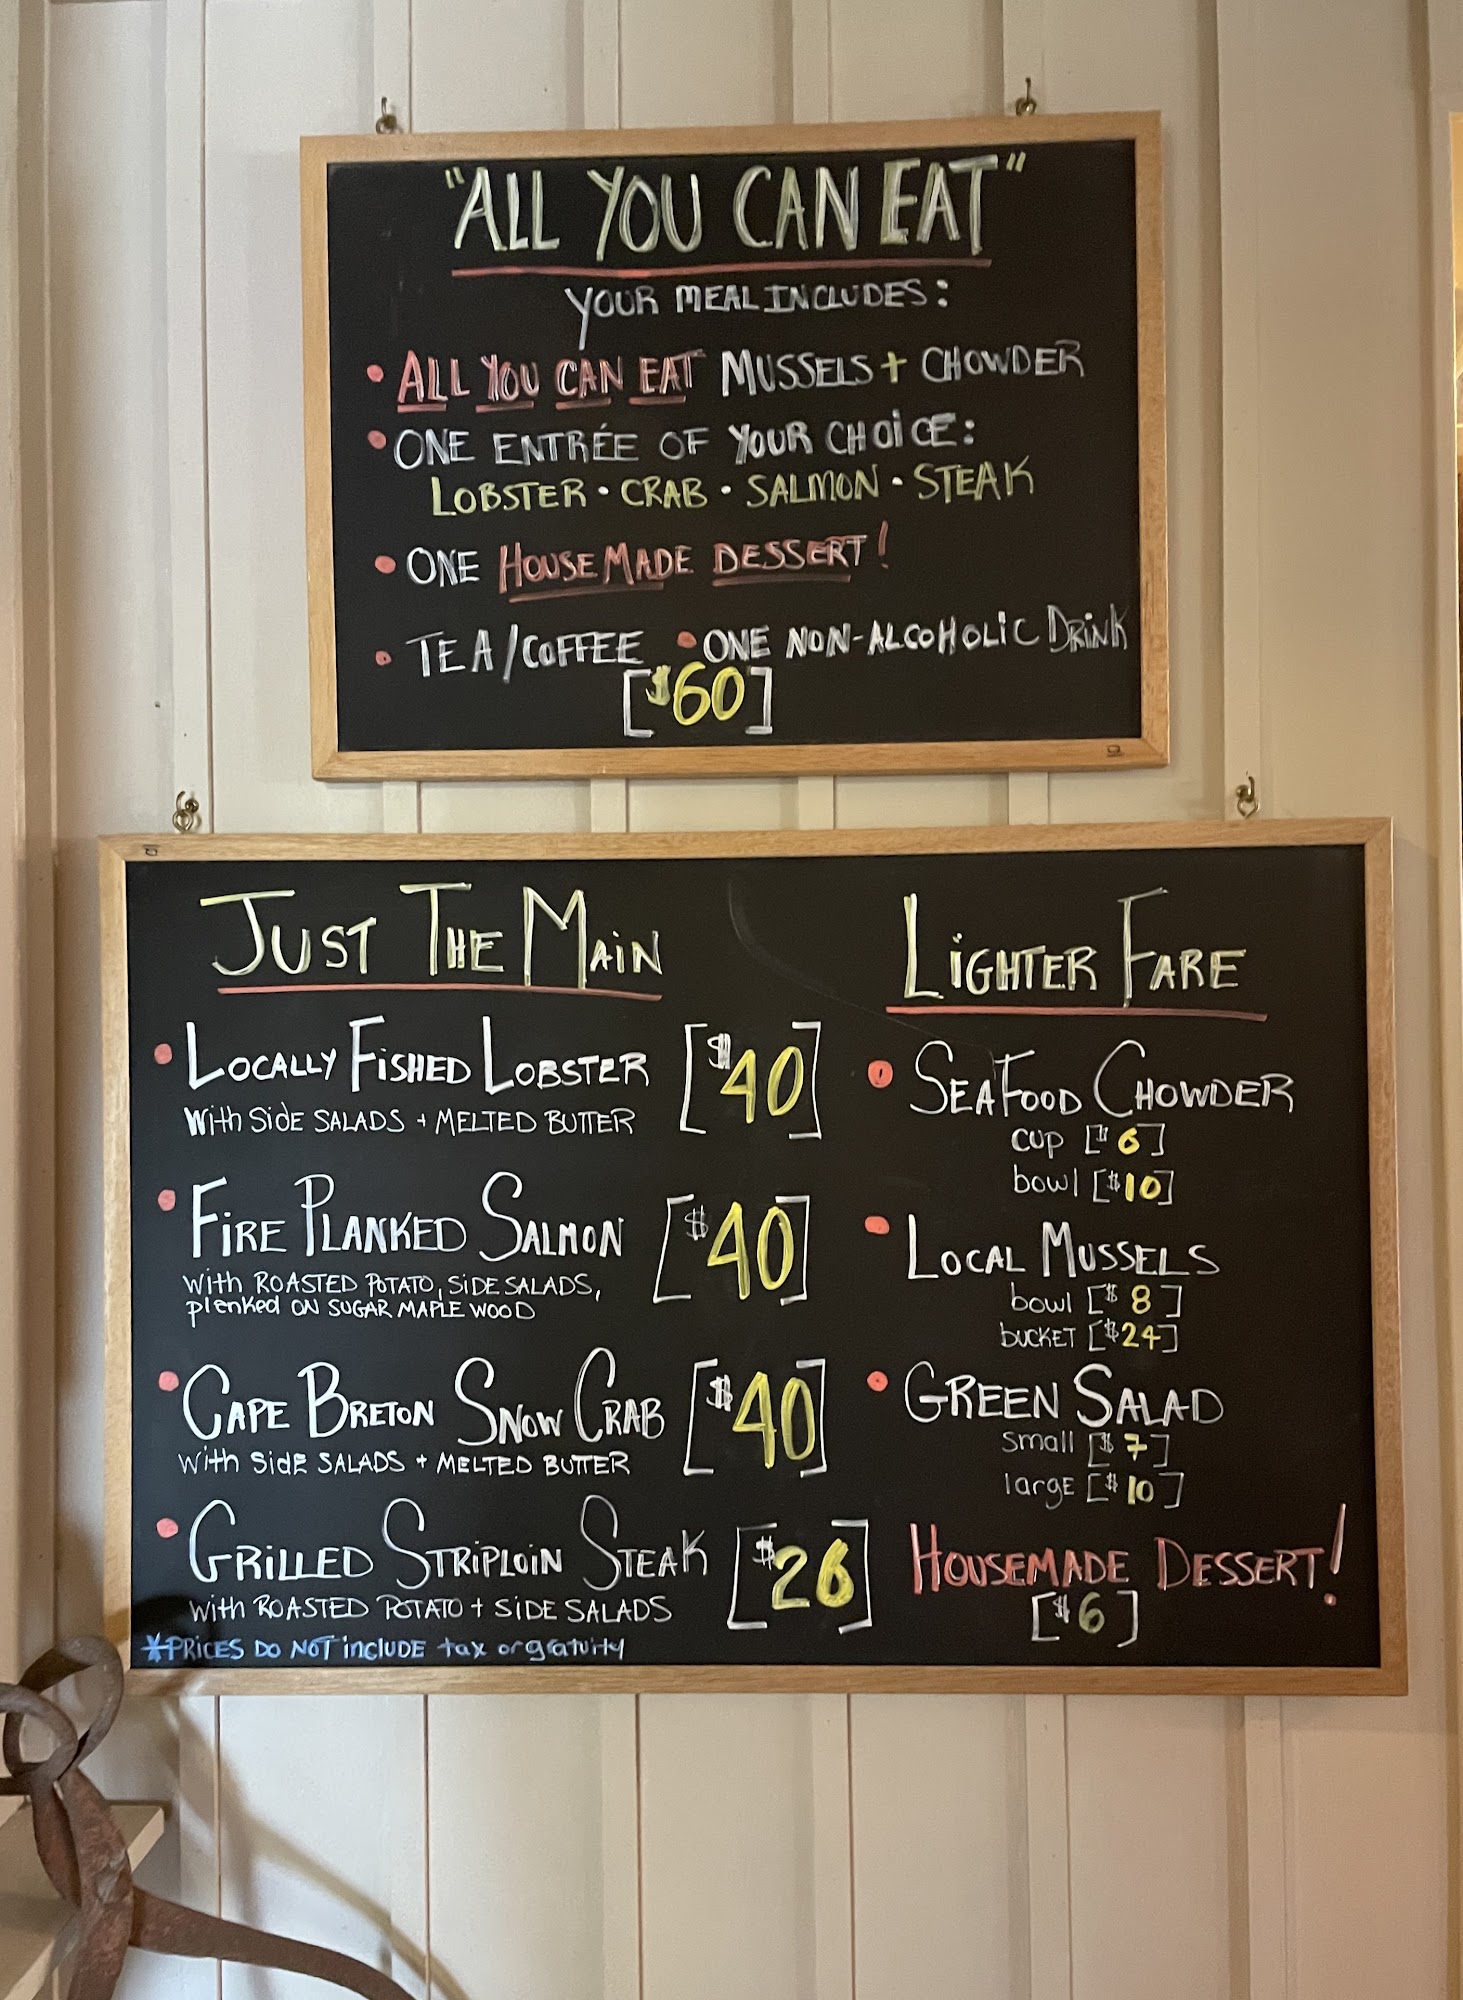 "ALL YOU CAN EAT"
YOUR MEAL INCLUDES:
• ALL YOU CAN EAT MUSSELS + CHOWDER
• ONE ENTRÉE OF YOUR CHOICE:
LOBSTER • CRAB • SALMON • STEAK
• ONE HOUSEMADE DESSERT!
• TEA/COFFEE • ONE NON-ALCOHOLIC DRINK
[$60]
JUST THE MAIN
• LOCALLY FISHED LOBSTER [$40]
with Side SALADS + MELTED BUTTER
• FIRE PLANKED SALMON [$40]
with ROASTED POTATO, SIDE SALADS,
plenked ON SUGAR MAPLE WOOD
• CAPE BRETON SNOW CRAB [$40]
with Side SALADS + MELTED BUTTER
• GRILLED STRIPLOIN STEAK [$26]
with ROASTED POTATO + SIDE SALADS
*PRICES DO NOT include tax or gratuity
LIGHTER FARE
• SEAFOOD CHOWDER
cup [$6]
bowl [$10]
• LOCAL MUSSELS
bowl [$8]
bucket [$24]
• GREEN SALAD
small [$7]
large [$10]
HOUSEMADE DESSERT!
[$6]